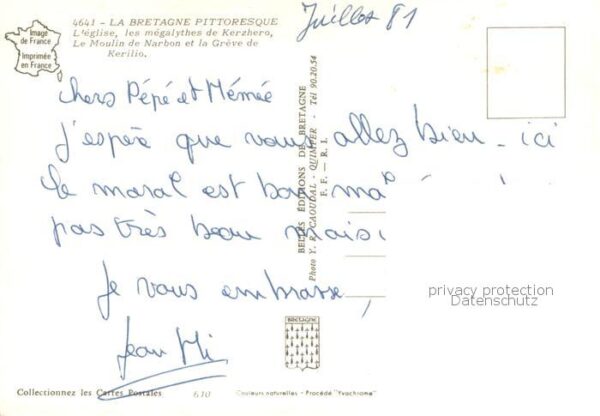 Juillet 81
4641 - LA BRETAGNE PITTORESQUE
L'église, les mégalythes de Kerzhero,
Le Moulin de Narbon et la Grève de
Kerilio.
Image
de France
Imprimée
en France
chers Pépé et Mémée
j'espère que vous allez bien - ici
le moral est bon
pas très beau mais
je vous embrasse,
Jean Mi
BELLES ÉDITIONS DE BRETAGNE
Photo Y. R. CAOUDAL - QUIMPER - Tél 90.20.54
F. F. - R. I.
privacy protection
Datenschutz
BRETAGNE
Collectionnez les Cartes Postales
610
Couleurs naturelles - Procédé "Yvochrome"